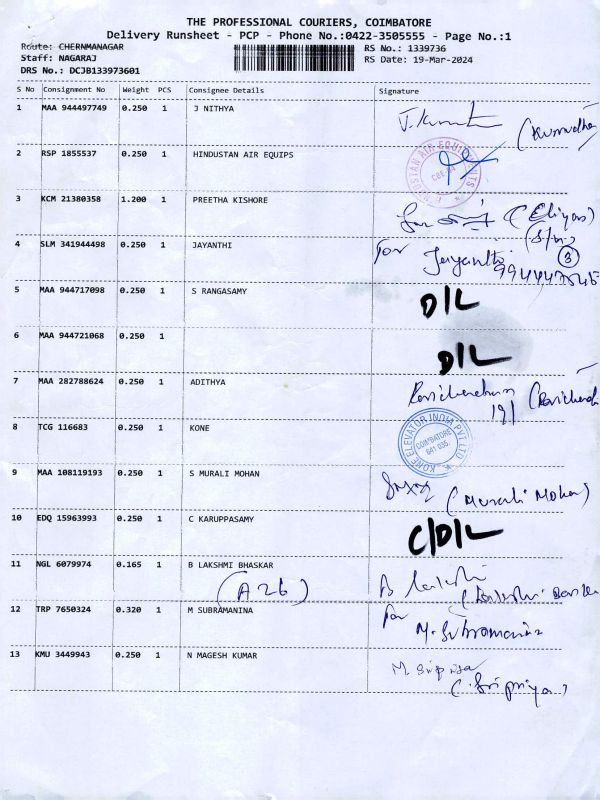 THE PROFESSIONAL COURIERS, COIMBATORE
Delivery Runsheet - PCP - Phone No.:0422-3505555 - Page No.:1
Route: CHERNMANAGAR RS No.: 1339736
Staff: NAGARAJ RS Date: 19-Mar-2024
DRS No.: DCJB133973601
S No Consignment No Weight PCS Consignee Details Signature
1 MAA 944497749 0.250 1 J NITHYA
2 RSP 1855537 0.250 1 HINDUSTAN AIR EQUIPS
3 KCM 21380358 1.200 1 PREETHA KISHORE
4 SLM 341944498 0.250 1 JAYANTHI For Jayanthi
5 MAA 944717098 0.250 1 S RANGASAMY D/L
6 MAA 944721068 0.250 1 D/L
7 MAA 282788624 0.250 1 ADITHYA
8 TCG 116683 0.250 1 KONE
KONE ELEVATOR INDIA PVT LTD
COIMBATORE
641 035.
9 MAA 108119193 0.250 1 S MURALI MOHAN (Murali Mohan)
10 EDQ 15963993 0.250 1 C KARUPPASAMY C/D/L
11 NGL 6079974 0.165 1 B LAKSHMI BHASKAR
(A 26)
12 TRP 7650324 0.320 1 M SUBRAMANINA For
13 KMU 3449943 0.250 1 N MAGESH KUMAR M Sripriya
(Sripriya)